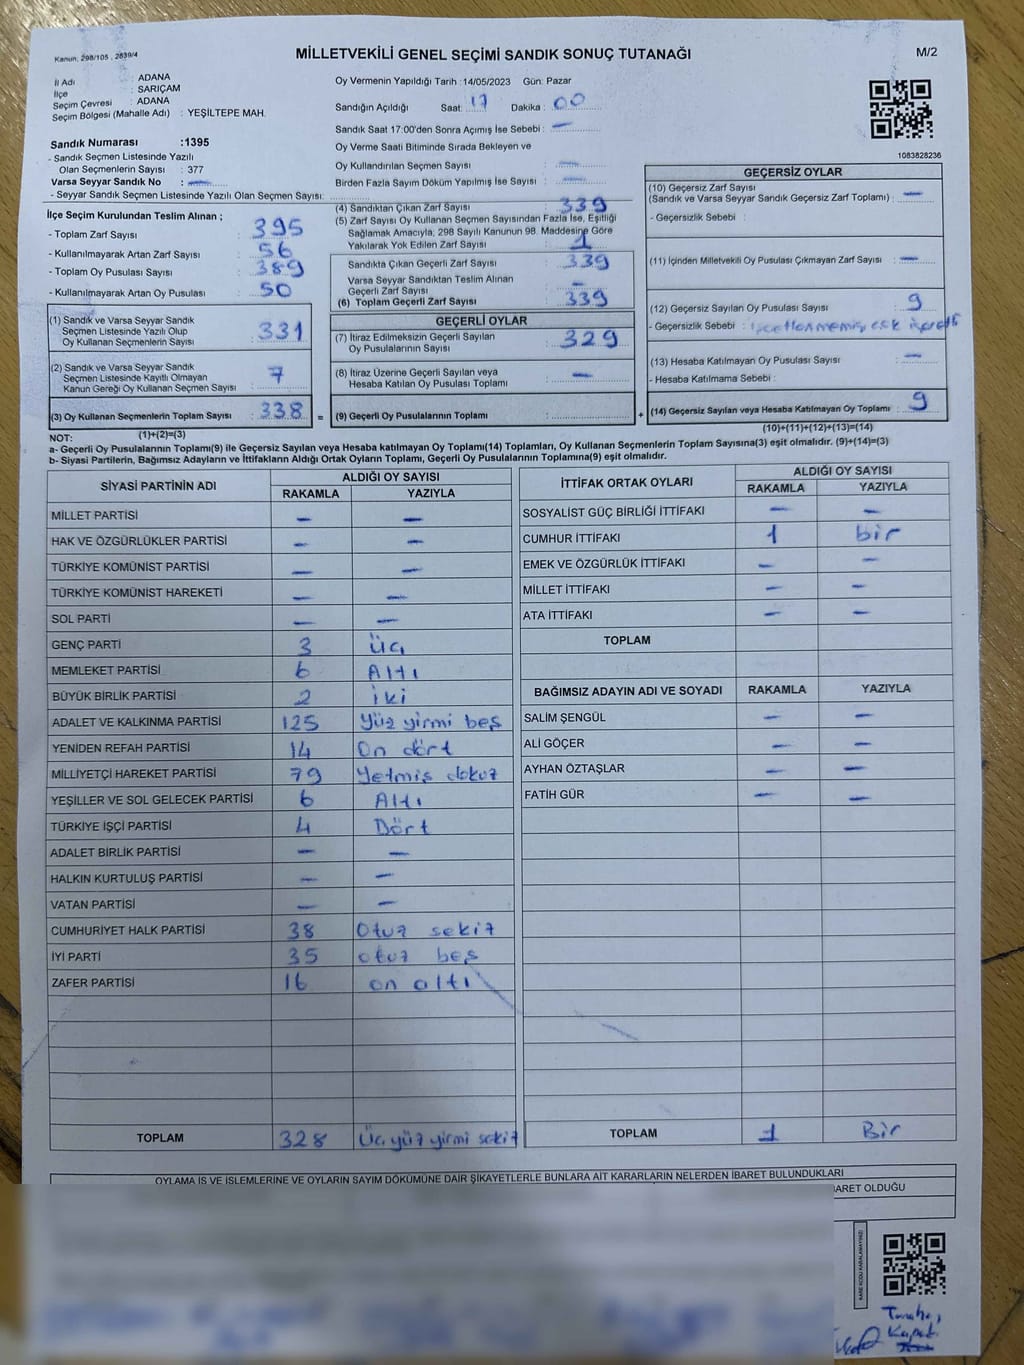 Kanun, 298/105 , 2839/4
MİLLETVEKİLİ GENEL SEÇİMİ SANDIK SONUÇ TUTANAĞI
M/2
İl Adı : ADANA
İlçe : SARIÇAM
Seçim Çevresi : ADANA
Seçim Bölgesi (Mahalle Adı) : YEŞİLTEPE MAH.
Sandık Numarası :1395
- Sandık Seçmen Listesinde Yazılı
Olan Seçmenlerin Sayısı : 377
Varsa Seyyar Sandık No : —
- Seyyar Sandık Seçmen Listesinde Yazılı Olan Seçmen Sayısı:
Oy Vermenin Yapıldığı Tarih :14/05/2023 Gün: Pazar
Sandığın Açıldığı Saat: 17 Dakika : 00
Sandık Saat 17:00'den Sonra Açımış İse Sebebi : —
Oy Verme Saati Bitiminde Sırada Bekleyen ve
Oy Kullandırılan Seçmen Sayısı : —
Birden Fazla Sayım Döküm Yapılmış İse Sayısı : —
1083828236
İlçe Seçim Kurulundan Teslim Alınan ;
- Toplam Zarf Sayısı : 395
- Kullanılmayarak Artan Zarf Sayısı : 56
- Toplam Oy Pusulası Sayısı : 389
- Kullanılmayarak Artan Oy Pusulası : 50
(1) Sandık ve Varsa Seyyar Sandık
Seçmen Listesinde Yazılı Olup
Oy Kullanan Seçmenlerin Sayısı : 331
(2) Sandık ve Varsa Seyyar Sandık
Seçmen Listesinde Kayıtlı Olmayan
Kanun Gereği Oy Kullanan Seçmen Sayısı : 7
(3) Oy Kullanan Seçmenlerin Toplam Sayısı : 338 =
(1)+(2)=(3)
(4) Sandıktan Çıkan Zarf Sayısı : 339
(5) Zarf Sayısı Oy Kullanan Seçmen Sayısından Fazla İse, Eşitliği
Sağlamak Amacıyla, 298 Sayılı Kanunun 98. Maddesine Göre
Yakılarak Yok Edilen Zarf Sayısı : 1
Sandıkta Çıkan Geçerli Zarf Sayısı : 339
Varsa Seyyar Sandıktan Teslim Alınan
Geçerli Zarf Sayısı : —
(6) Toplam Geçerli Zarf Sayısı : 339
GEÇERLİ OYLAR
(7) İtiraz Edilmeksizin Geçerli Sayılan
Oy Pusulalarının Sayısı : 329
(8) İtiraz Üzerine Geçerli Sayılan veya
Hesaba Katılan Oy Pusulası Toplamı : —
(9) Geçerli Oy Pusulalarının Toplamı : +
GEÇERSİZ OYLAR
(10) Geçersiz Zarf Sayısı
(Sandık ve Varsa Seyyar Sandık Geçersiz Zarf Toplamı) : —
- Geçersizlik Sebebi :
(11) İçinden Milletvekili Oy Pusulası Çıkmayan Zarf Sayısı : —
(12) Geçersiz Sayılan Oy Pusulası Sayısı : 9
- Geçersizlik Sebebi :
(13) Hesaba Katılmayan Oy Pusulası Sayısı : —
- Hesaba Katılmama Sebebi :
(14) Geçersiz Sayılan veya Hesaba Katılmayan Oy Toplamı : 9
(10)+(11)+(12)+(13)=(14)
NOT:
a- Geçerli Oy Pusulalarının Toplamı(9) ile Geçersiz Sayılan veya Hesaba katılmayan Oy Toplamı(14) Toplamları, Oy Kullanan Seçmenlerin Toplam Sayısına(3) eşit olmalıdır. (9)+(14)=(3)
b- Siyasi Partilerin, Bağımsız Adayların ve İttifakların Aldığı Ortak Oyların Toplamı, Geçerli Oy Pusulalarının Toplamına(9) eşit olmalıdır.
SİYASİ PARTİNİN ADI ALDIĞI OY SAYISI
RAKAMLA YAZIYLA
MİLLET PARTİSİ — —
HAK VE ÖZGÜRLÜKLER PARTİSİ — —
TÜRKİYE KOMÜNİST PARTİSİ — —
TÜRKİYE KOMÜNİST HAREKETİ — —
SOL PARTİ — —
GENÇ PARTİ 3 Üç
MEMLEKET PARTİSİ 6 Altı
BÜYÜK BİRLİK PARTİSİ 2 iki
ADALET VE KALKINMA PARTİSİ 125 Yüz yirmi beş
YENİDEN REFAH PARTİSİ 14 On dört
MİLLİYETÇİ HAREKET PARTİSİ 79 Yetmiş dokuz
YEŞİLLER VE SOL GELECEK PARTİSİ 6 Altı
TÜRKİYE İŞÇİ PARTİSİ 4 Dört
ADALET BİRLİK PARTİSİ — —
HALKIN KURTULUŞ PARTİSİ — —
VATAN PARTİSİ — —
CUMHURİYET HALK PARTİSİ 38 Otuz sekiz
İYİ PARTİ 35 otuz beş
ZAFER PARTİSİ 16 on altı
TOPLAM 328 Üç yüz yirmi sekiz
İTTİFAK ORTAK OYLARI ALDIĞI OY SAYISI
RAKAMLA YAZIYLA
SOSYALİST GÜÇ BİRLİĞİ İTTİFAKI — —
CUMHUR İTTİFAKI 1 bir
EMEK VE ÖZGÜRLÜK İTTİFAKI — —
MİLLET İTTİFAKI — —
ATA İTTİFAKI — —
TOPLAM
BAĞIMSIZ ADAYIN ADI VE SOYADI RAKAMLA YAZIYLA
SALİM ŞENGÜL — —
ALİ GÖÇER — —
AYHAN ÖZTAŞLAR — —
FATİH GÜR — —
TOPLAM 1 Bir
OYLAMA İŞ VE İŞLEMLERİNE VE OYLARIN SAYIM DÖKÜMÜNE DAİR ŞİKAYETLERLE BUNLARA AİT KARARLARIN NELERDEN İBARET BULUNDUKLARI
BARET OLDUĞU
KARE KODU KARALAMAYINIZ!